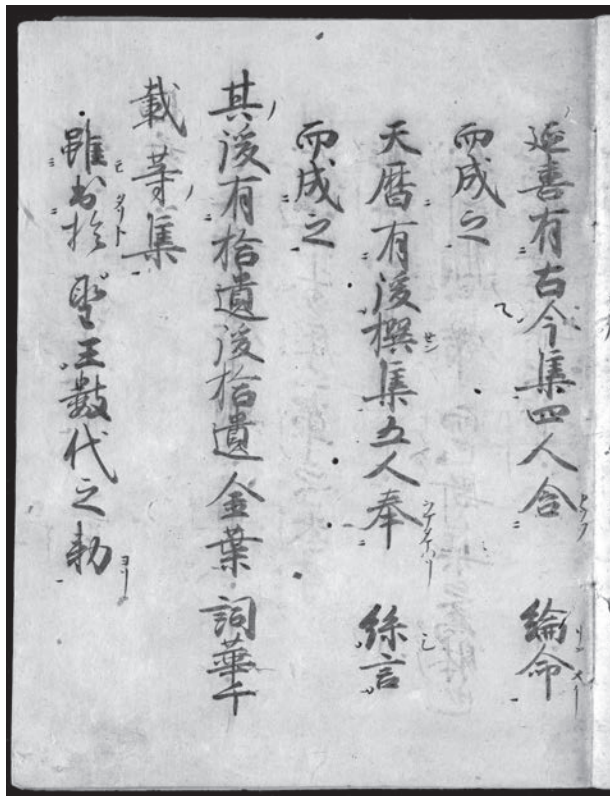 延喜有古今集四人含 綸命
而成之
天暦有後撰集五人奉 絲言
而成之
其後有拾遺後拾遺金葉詞華千
載等集
雖出於 聖王數代之勅